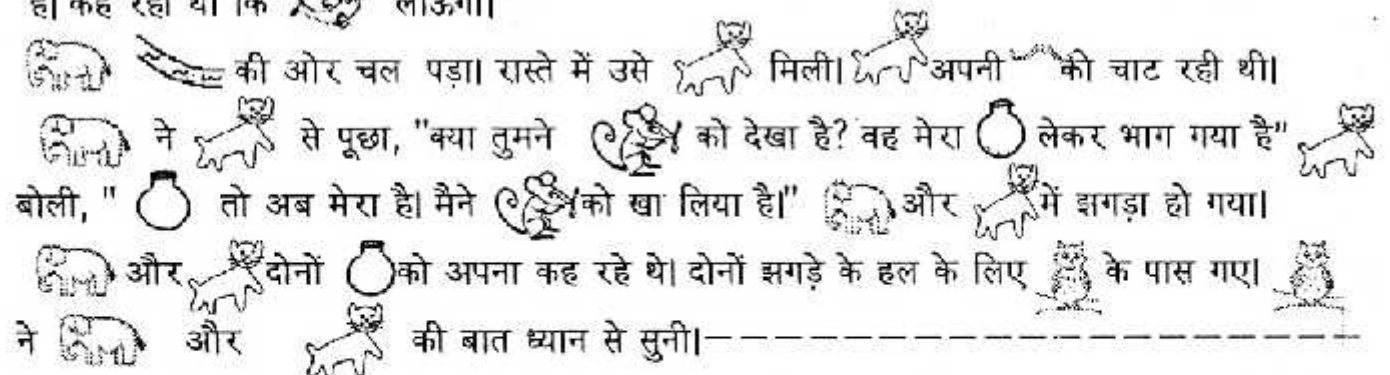 है। कह रहा था कि लाऊँगा।
की ओर चल पड़ा। रास्ते में उसे मिली। अपनी को चाट रही थी।
ने से पूछा, "क्या तुमने को देखा है? वह मेरा लेकर भाग गया है"
बोली, " तो अब मेरा है। मैने को खा लिया है।" और में झगड़ा हो गया।
और दोनों को अपना कह रहे थे। दोनों झगड़े के हल के लिए के पास गए।
ने और की बात ध्यान से सुनी।--------------------